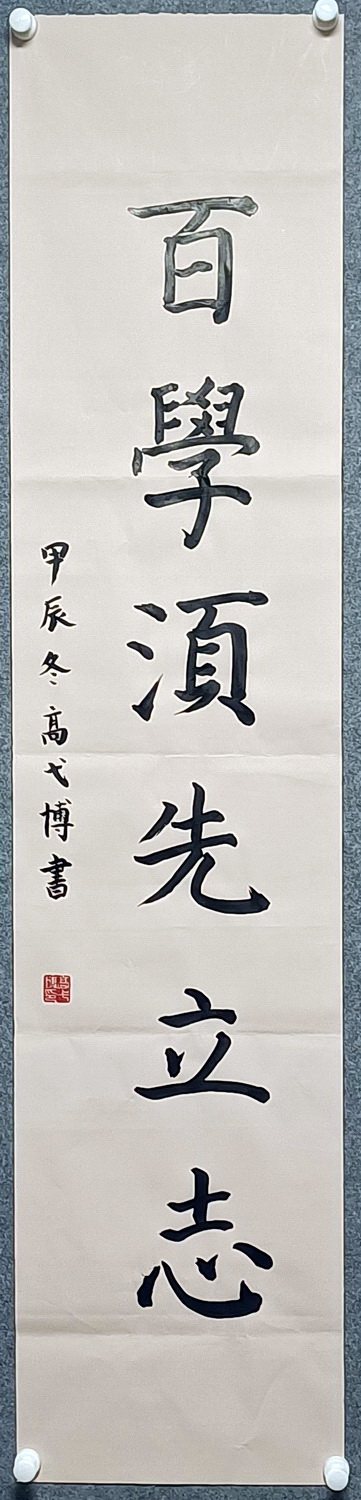 百學湏先立志
甲辰冬高弋博書